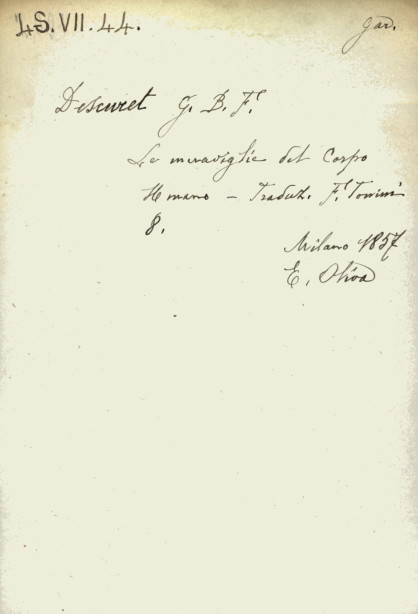 LS.VII.44.
gad.
Descuret G. B. F.
Le meraviglie del Corpo
Umano – Traduz. F.
8.
Milano 1857
E. Oliva